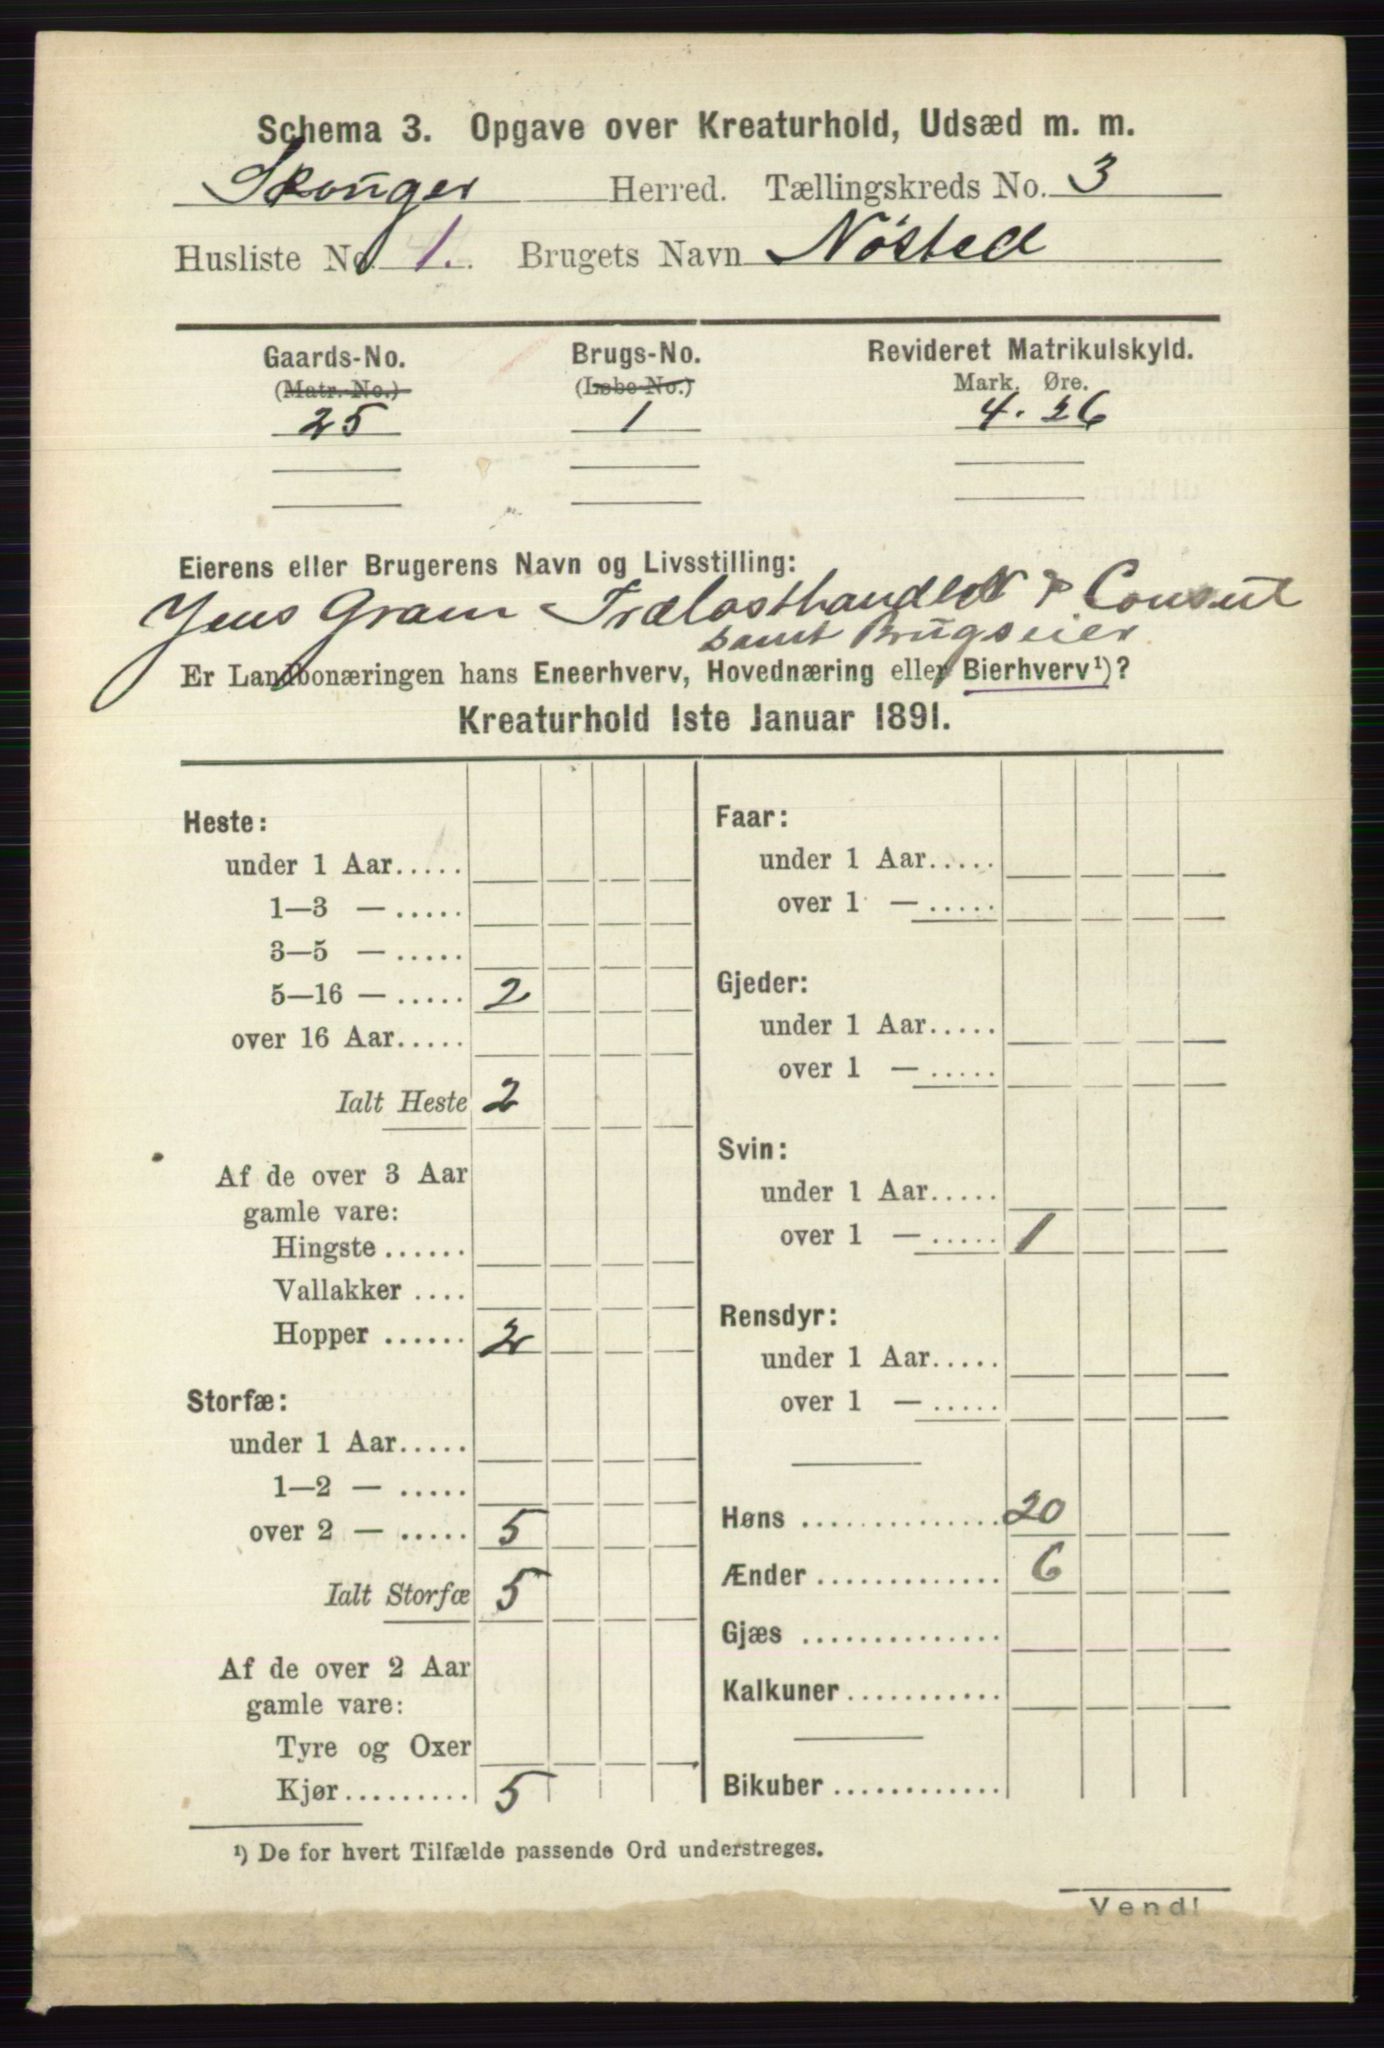 Schema 3. Opgave over Kreaturhold, Udsæd m. m.
Skouger Herred. Tællingskreds No. 3
Husliste No. 1. Brugets Navn Nøsted
Gaards-No. Brugs-No. Revideret Matrikulskyld.
(Matr.-No.) (Løbe-No.) Mark. Øre.
25 1 4. 26
Eierens eller Brugerens Navn og Livsstilling:
Jens Gram Trælasthandler & Consul
samt Brugseier
Er Landbonæringen hans Eneerhverv, Hovednæring eller Bierhverv¹)?
Kreaturhold 1ste Januar 1891.
Heste:
under 1 Aar.....
1—3 — .....
3—5 — .....
5—16 — ..... 2
over 16 Aar.....
Ialt Heste 2
Af de over 3 Aar
gamle vare:
Hingste ......
Vallakker ....
Hopper ...... 2
Storfæ:
under 1 Aar.....
1—2 — .....
over 2 — ..... 5
Ialt Storfæ 5
Af de over 2 Aar
gamle vare:
Tyre og Oxer
Kjør......... 5
Faar:
under 1 Aar.....
over 1 — .....
Gjeder:
under 1 Aar.....
over 1 — .....
Svin:
under 1 Aar.....
over 1 — ..... 1
Rensdyr:
under 1 Aar.....
over 1 — .....
Høns .............. 20
Ænder ............. 6
Gjæs ..............
Kalkuner...........
Bikuber ............
¹) De for hvert Tilfælde passende Ord understreges.
Vend!